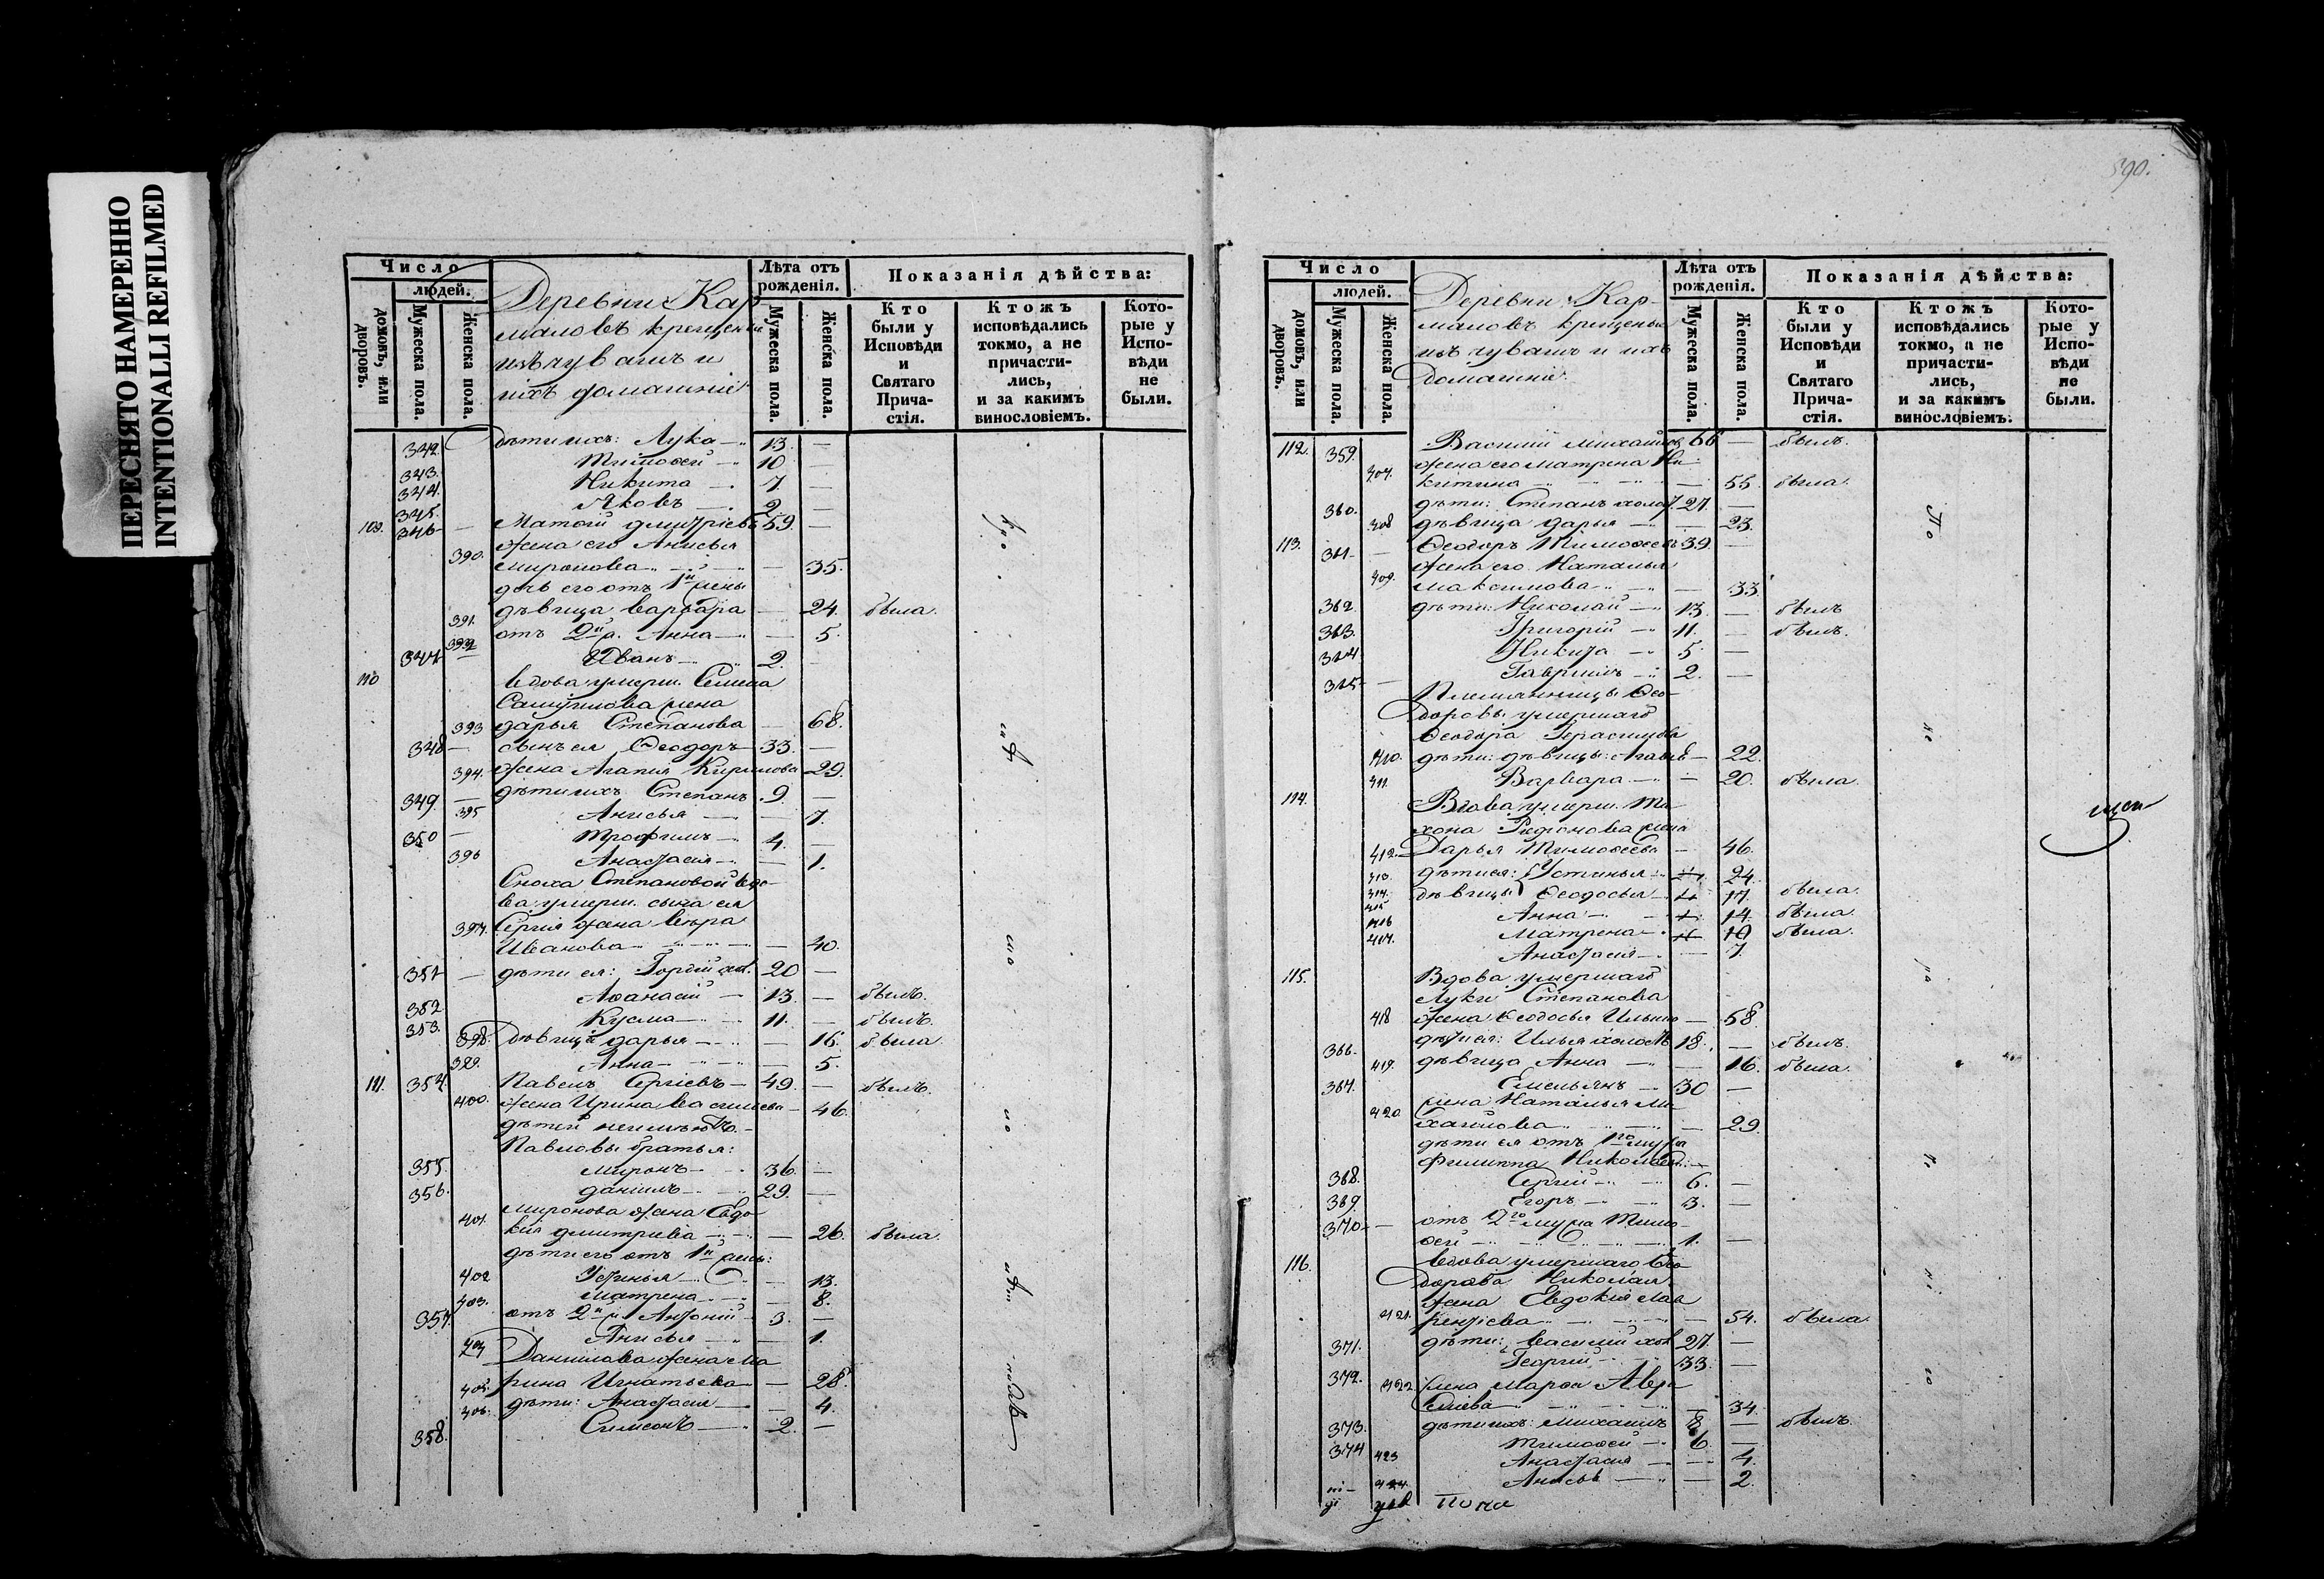 ПЕРЕСНЯТО НАМЕРЕННО
INTENTIONALLI REFILMED
Число
людей.
домовъ, или дворовъ.
Мужеска пола.
Женска пола.
Деревни Кар
маловъ крещеныи
изъ чувашъ и
ихъ домашніи
Лѣта отъ рожденія.
Мужеска пола.
Женска пола.
Показанія дѣйства:
Кто были у Исповѣди и Святаго Прича-стія.
Ктожъ исповѣдались токмо, а не причасти-лись, и за какимъ винословіемъ.
Кото-рые у Испо-вѣди не были.
342. дѣти ихъ: Лука 13. —
343. Тимоѳей 10 —
344. Никита 7 —
345. Яковъ 2 —
109. 346 — Матѳій Дмитріевъ 59. —
390. жена его Анисья
Миронова — 35.
дочь его отъ 1й жены
391. дѣвица Варвара — 24. была.
392 отъ 2й ж. Анна — 5.
347 — Иванъ 2. —
110 вдова умерш. Семена
жена
393 Дарья Степанова — 68.
348 — сынъ ея Ѳеодоръ 33. —
394. жена Агапія Кирилова 29.
349. — дѣти ихъ Степанъ 9 —
395 Анисья — 7.
350 — Трофимъ 4. —
396 Анастасія — 1.
Сноха Степановой вдо-
ва умерш. сына ея
397. Сергія жена Вѣра
Иванова — 40.
351 — дѣти ея: Гордій хол. 20 —
352 Аѳанасій 13. — былъ.
353. Кузма 11. — былъ.
398. дѣвица Дарья — 16. была
399. Анна — 5.
111. 354. Павелъ Сергіевъ 49. — былъ.
400. жена Ирина Василіева — 46.
дѣтей неимѣютъ.
Павловы братья:
355. Миронъ 36. —
356. Даніилъ 29. —
Миронова жена Евдо-
401. кія Дмитріева — 26. была.
дѣти его отъ 1й жены:
402 Устинья — 13.
403. Матрена — 8.
357. отъ 2й ж. Антоній 3. —
404 Анисья — 1.
Данилова жена Ма
405. рина Игнатьева — 28.
406. дѣти: Анастасія — 4.
358. Симеонъ 2. —
590.
Число
людей.
домовъ, или дворовъ.
Мужеска пола.
Женска пола.
Деревни Кар-
маловъ крещеныи
изъ чувашъ и ихъ
домашніи
Лѣта отъ рожденія.
Мужеска пола.
Женска пола.
Показанія дѣйства:
Кто были у Исповѣди и Святаго Прича-стія.
Ктожъ исповѣдались токмо, а не причасти-лись, и за какимъ винословіемъ.
Кото-рые у Испо-вѣди не были.
112. 359. Василій Михайловъ 66 — былъ.
жена его Матрена Ни-
407. китина — 55 была.
360. дѣти: Степанъ холос. 27. —
408 дѣвица Дарья — 23.
113. 361 — Ѳеодоръ Тимоѳеевъ 39. —
жена его Наталья
409. Максимова — 33
362. дѣти: Николай 13. — былъ
363. Григорій 11. — былъ.
364. Никита 5 —
365 — Гавріилъ 2. —
Племянницы Ѳео-
доровы умершаго
Ѳеодора Герасимова
410. дѣти: дѣвицы: — 22.
411. Варвара — 20. была.
114. Вдова умерш. Ти-
хона жена
412. Дарья Тимоѳеева — 46.
413. дѣти ея: Устинья 24.
414. дѣвицы Ѳеодосья 17. была.
415 Анна 14. была.
416 Матрена 10 была.
417. Анастасія — 7.
115. Вдова умершаго
Луки Степанова
418 жена Ѳеодосья Ильина — 58.
366. дѣти ея: Илья холостъ 18. — былъ.
419. дѣвица Анна — 16. была.
367. Емельянъ 30 —
жена Наталья Ми-
420 хайлова — 29.
дѣти ея отъ 1го мужа
Филиппа Николаева:
368. Сергій 6. —
369. Егоръ 3. —
370. — отъ 2го мужа Тимо-
ѳей 1. —
116. вдова умершаго Ѳео
дорова Николая
жена Евдокія Лав
421. рентіева — 54. была.
371. дѣти: Василій хол. 27. —
372. Георгій 33. —
422. жена Марѳа
— 34.
373. дѣти ихъ: Михаилъ 8 — былъ.
374 Тимоѳей 6. —
423 Анастасія — 4.
424. Анисья — 2.